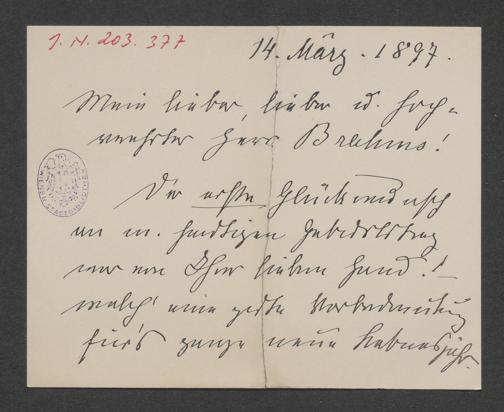 J. N. 203.377
14. März. 1897.
Mein lieber, lieber u. hoch-
verehrter Herr Brahms!
Der erste Glückwunsch
an m. heutigen Geburtstag
war von Ihrer lieben Hand!!
welch' eine gute Vorbedeutung
für's ganze neue Lebensjahr.